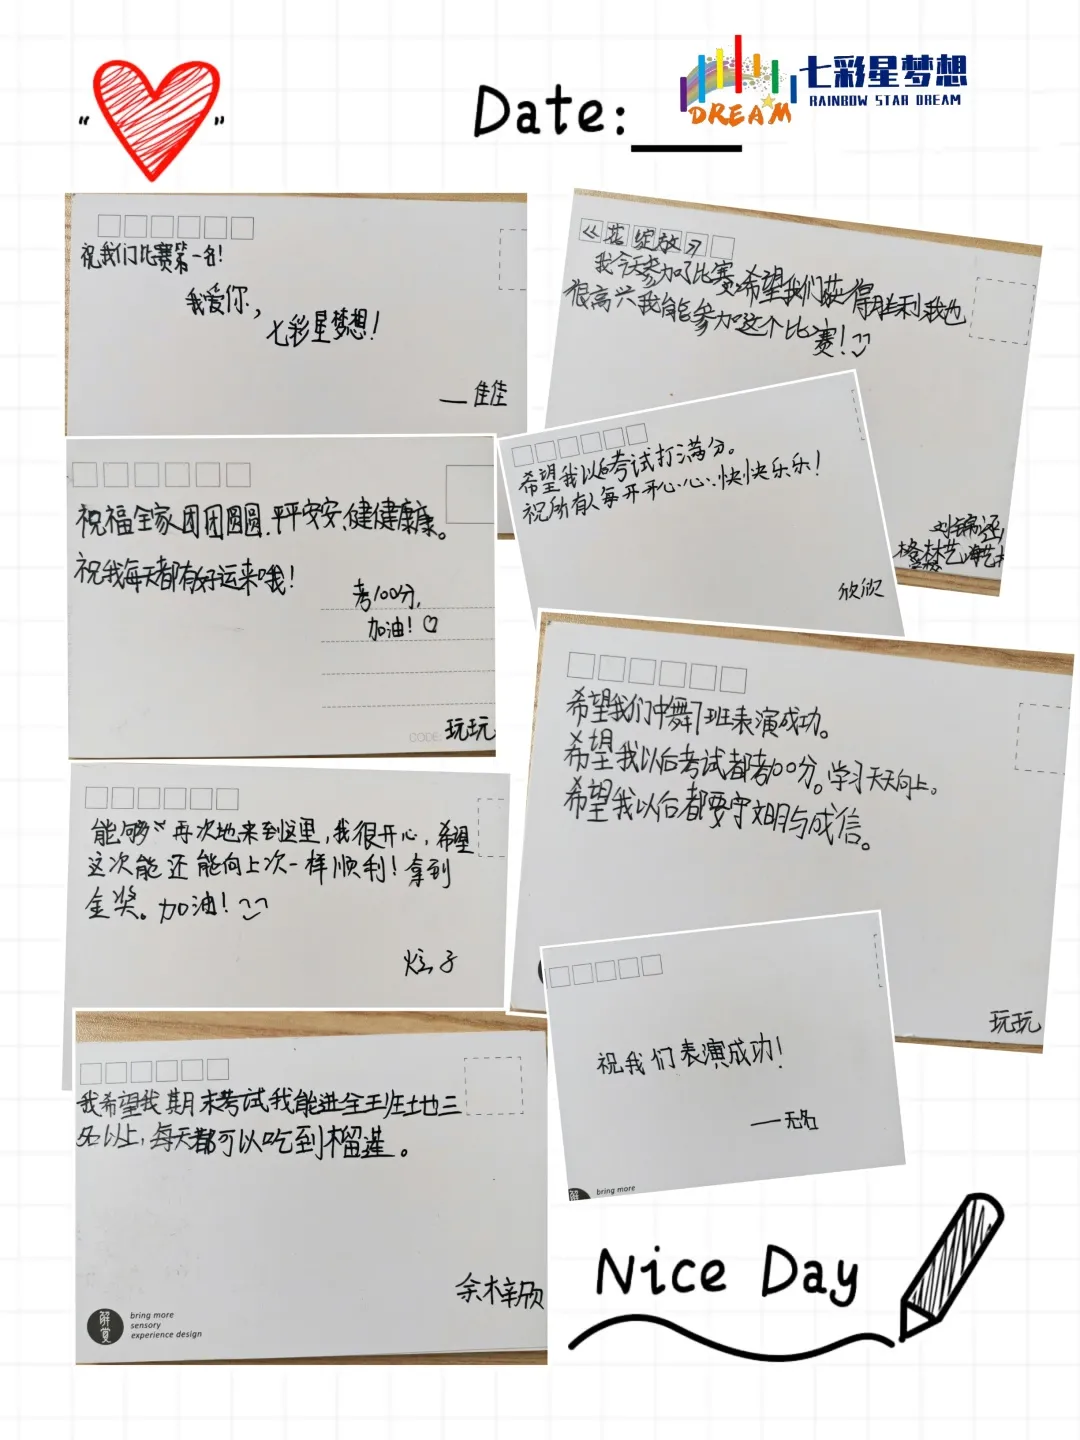 “ ”
Date:
DREAM
七彩星梦想
RAINBOW STAR DREAM
祝我们比赛第一名!
我爱你,
七彩星梦想!
——佳佳
《花绽放》
我今天参加了比赛,希望我们获得胜利,我也
很高兴我能参加这个比
赛!
刘锦
格林艺海艺
希望我以后考试打满分。
祝所有人每开开心心、快快乐乐!
欣欣
祝福全家团团圆圆.平平安安、健健康康。
祝我每天都有好运来哦!
考100分,
加油!
CODE:
玩玩
希望我们中舞7班表演成功。
希望我以后考试都考100分。学习天天向上。
希望我以后都要守文明与成信。
玩玩
能够再次地来到这里,我很开心,希望
这次能还能向上次一样顺利!拿到
金奖。加油!
炫子
祝我们表演成功!
——无名
bring more
我希望我期末考试我能进全班地三
名以上,每天都可以吃到榴莲。
余梓欣
bring more
sensory
experience design
Nice Day